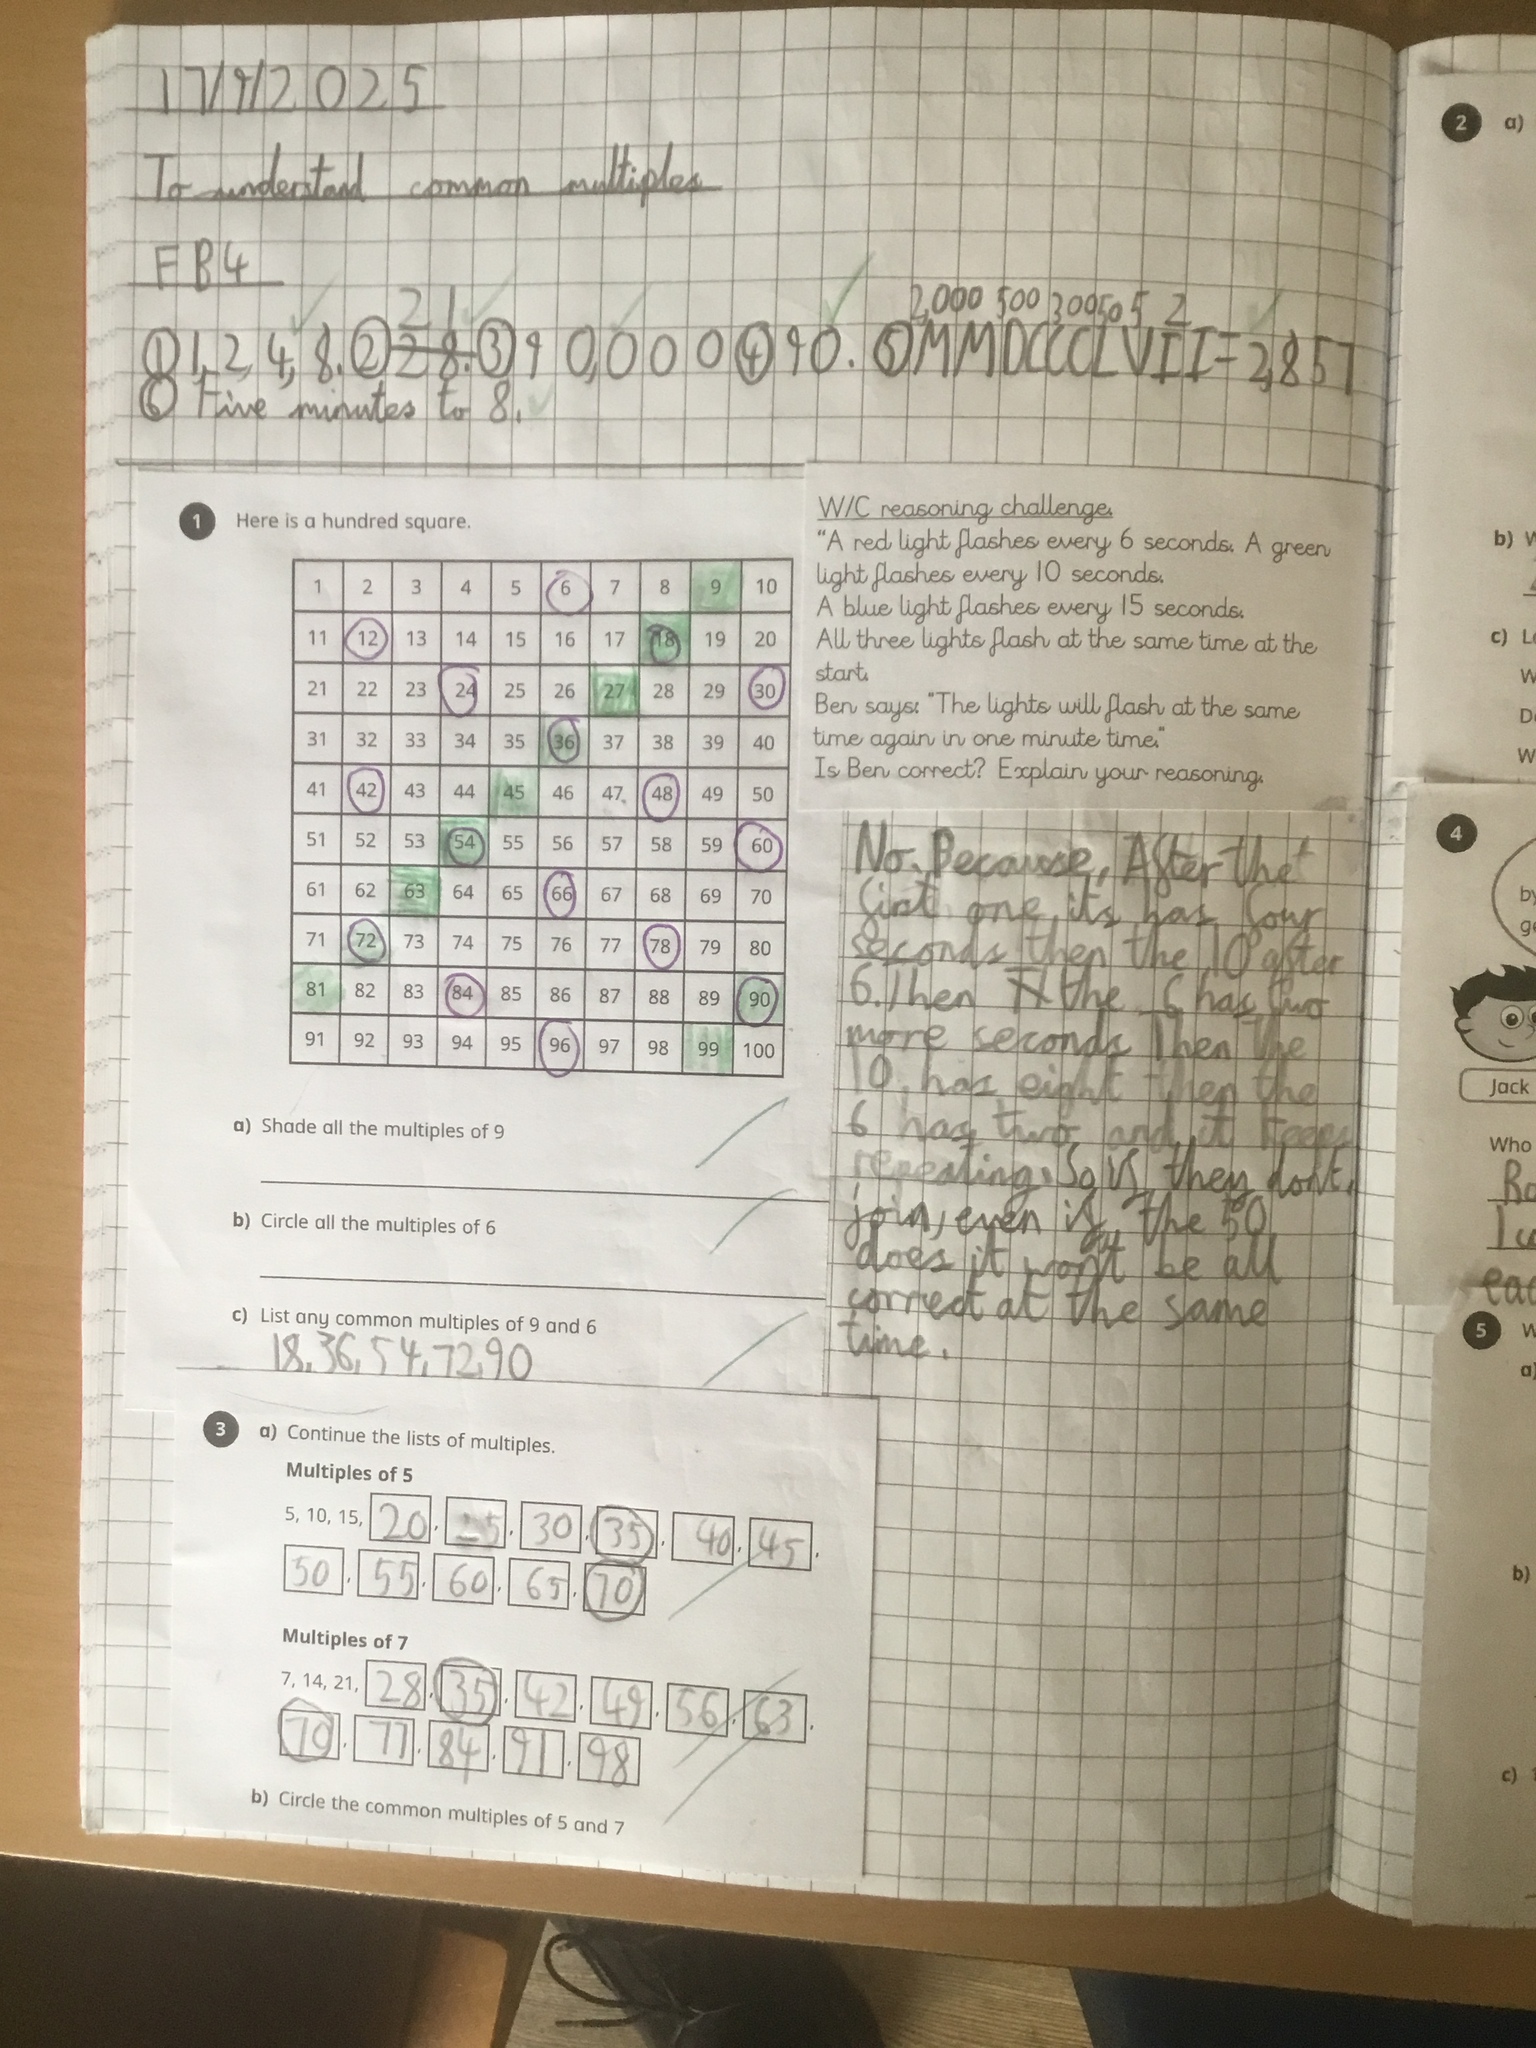 17/9/2025
To understand common multiples
FB4
① 1, 2, 4, 8. ② 28. 21 ③ 90,000 ④ 90. ⑤ MMDCCCLVII = 2,857
2,000 500 300 50 5 2
⑥ Five minutes to 8.
1 Here is a hundred square.
1 2 3 4 5 6 7 8 9 10
11 12 13 14 15 16 17 18 19 20
21 22 23 24 25 26 27 28 29 30
31 32 33 34 35 36 37 38 39 40
41 42 43 44 45 46 47 48 49 50
51 52 53 54 55 56 57 58 59 60
61 62 63 64 65 66 67 68 69 70
71 72 73 74 75 76 77 78 79 80
81 82 83 84 85 86 87 88 89 90
91 92 93 94 95 96 97 98 99 100
a) Shade all the multiples of 9
b) Circle all the multiples of 6
c) List any common multiples of 9 and 6
18, 36, 54, 72, 90
W/C reasoning challenge.
"A red light flashes every 6 seconds. A green
light flashes every 10 seconds.
A blue light flashes every 15 seconds.
All three lights flash at the same time at the
start.
Ben says: "The lights will flash at the same
time again in one minute time."
Is Ben correct? Explain your reasoning.
No. Because, After the
first one, its has four
seconds then the 10 after
6. Then the 6 has two
more seconds Then the
10, has eight then the
6 has two and it keeps
repeating. So if they dont
join, even if the 50
does it won't be all
correct at the same
time.
3 a) Continue the lists of multiples.
Multiples of 5
5, 10, 15, 20, 25, 30, 35, 40, 45,
50, 55, 60, 65, 70
Multiples of 7
7, 14, 21, 28, 35, 42, 49, 56, 63,
70, 77, 84, 91, 98
b) Circle the common multiples of 5 and 7
2 a)
b) W
c) L
W
D
W
4
by
ge
Jack
Who
Ro
I
eac
5 W
a)
b)
c)